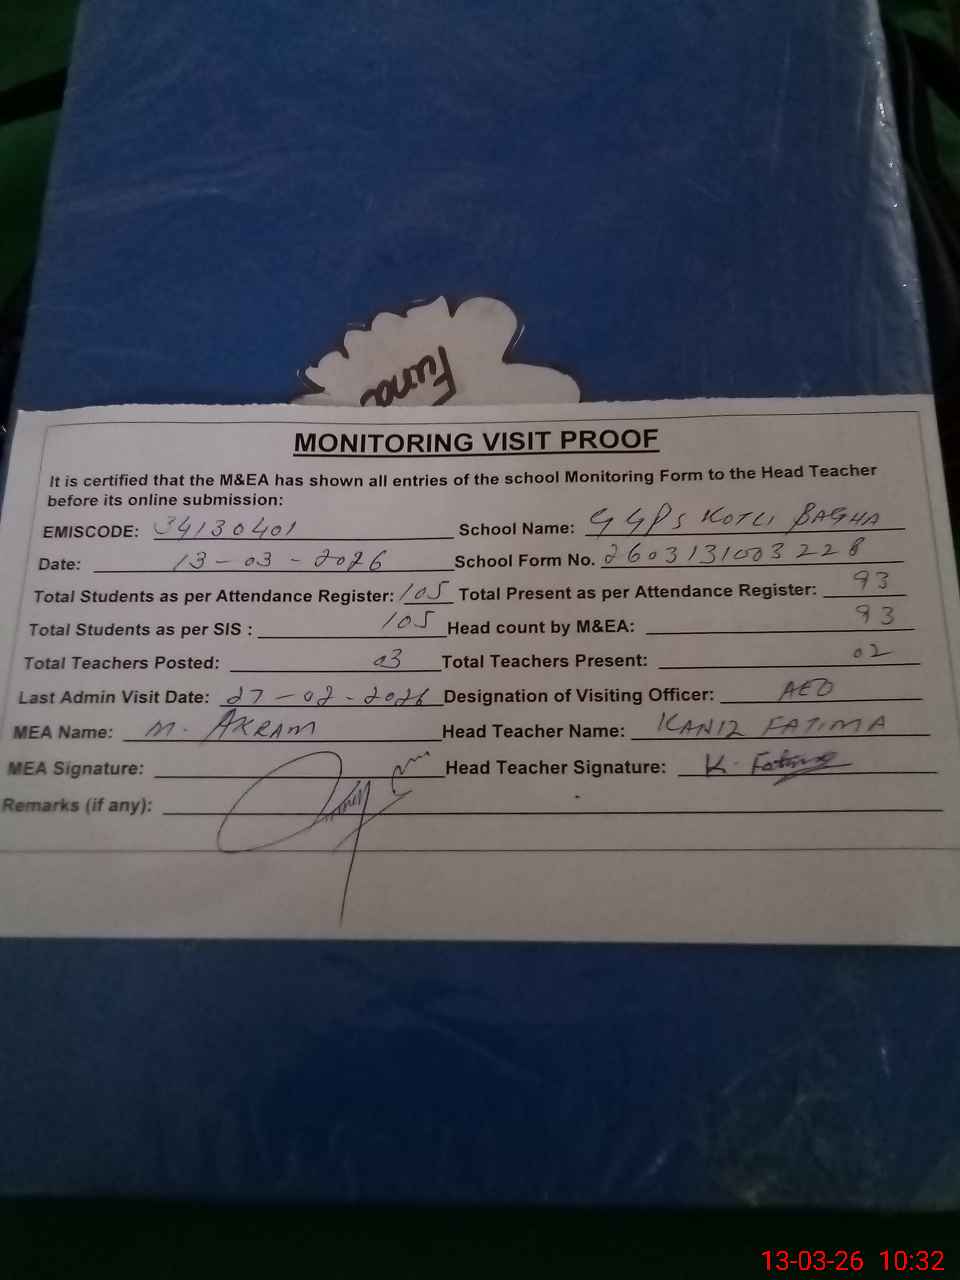 Fund
MONITORING VISIT PROOF
It is certified that the M&EA has shown all entries of the school Monitoring Form to the Head Teacher
before its online submission:
EMISCODE: 34130401 School Name: GGPS KOTLI BAGHA
Date: 13-03-2026 School Form No. 2603131003228
Total Students as per Attendance Register: 105 Total Present as per Attendance Register: 93
Total Students as per SIS : 105 Head count by M&EA: 93
Total Teachers Posted: 03 Total Teachers Present: 02
Last Admin Visit Date: 27-02-2026 Designation of Visiting Officer: AEO
MEA Name: M. AKRAM Head Teacher Name: KANIZ FATIMA
MEA Signature: Head Teacher Signature: K. Fatima
Remarks (if any):
13-03-26 10:32